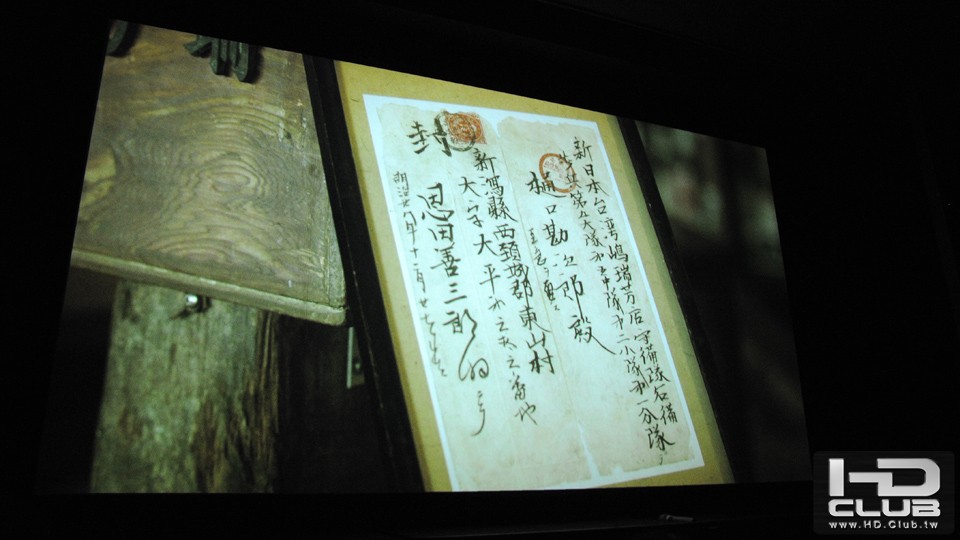 新日本台湾嶋瑞芳店守備隊
歩兵第五大隊 中隊第二小隊第一分隊
樋口勘次郎殿
新潟縣西頚城郡東山村
大字大平 番地
封 恩田善三郎
明治廿八年十二月廿
HD
CLUB
www.HD.Club.tw